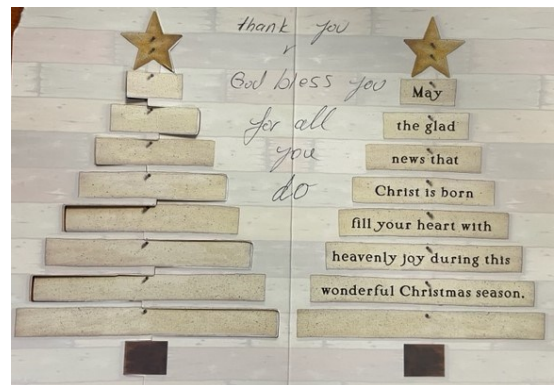 thank you
God bless you
for all
you
do
May
the glad
news that
Christ is born
fill your heart with
heavenly joy during this
wonderful Christmas season.